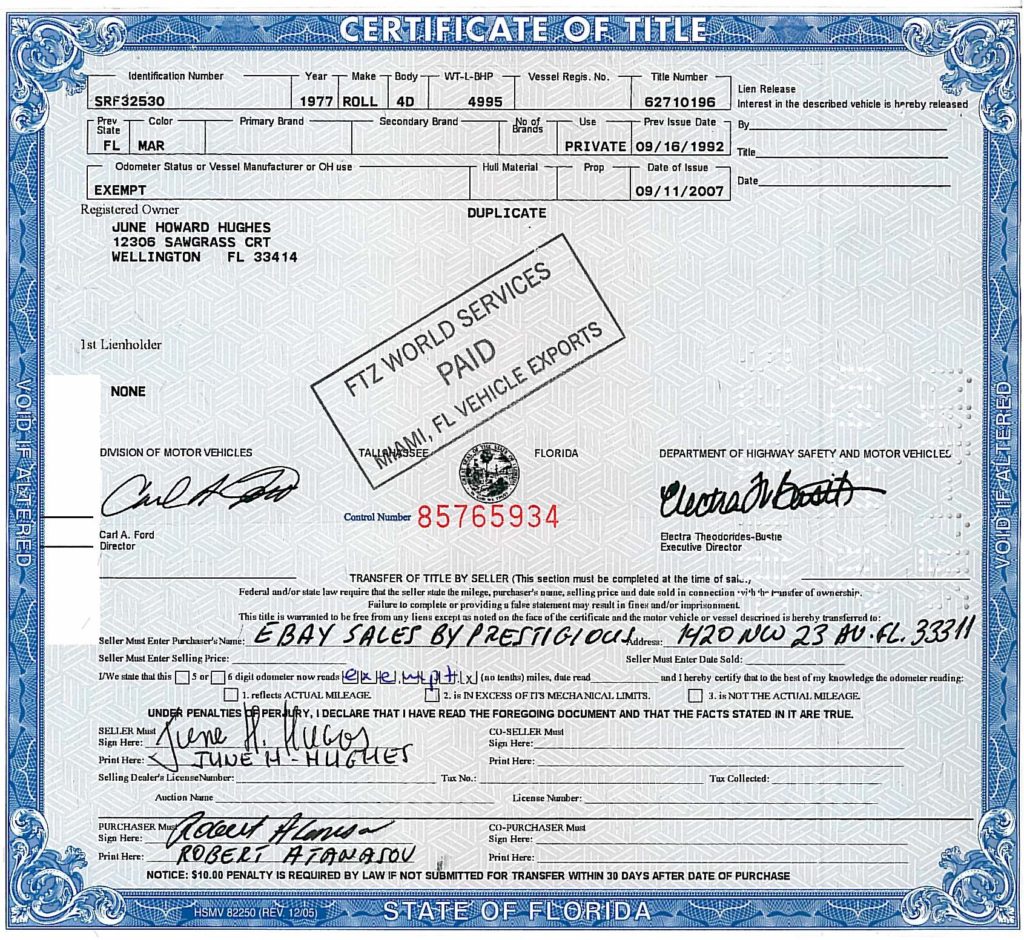 CERTIFICATE OF TITLE
Identification Number Year Make Body WT-L-BHP Vessel Regis. No. Title Number
SRF32530 1977 ROLL 4D 4995 62710196
Lien Release
Interest in the described vehicle is hereby released
Prev State Color Primary Brand Secondary Brand No of Brands Use Prev Issue Date
FL MAR PRIVATE 09/16/1992
By
Title
Odometer Status or Vessel Manufacturer or OH use Hull Material Prop Date of Issue
EXEMPT 09/11/2007
Date
Registered Owner DUPLICATE
JUNE HOWARD HUGHES
12306 SAWGRASS CRT
WELLINGTON FL 33414
FTZ WORLD SERVICES
PAID
MIAMI, FL VEHICLE EXPORTS
1st Lienholder
NONE
VOID IF ALTERED
VOID IF ALTERED
DIVISION OF MOTOR VEHICLES TALLAHASSEE FLORIDA DEPARTMENT OF HIGHWAY SAFETY AND MOTOR VEHICLES
Control Number 85765934
Carl A. Ford
Director
Electra Theodorides-Bustle
Executive Director
TRANSFER OF TITLE BY SELLER (This section must be completed at the time of sale.)
Federal and/or state law require that the seller state the milege, purchaser's name, selling price and date sold in connection with the transfer of ownership.
Failure to complete or providing a false statement may result in fines and/or imprisonment.
This title is warranted to be free from any liens except as noted on the face of the certificate and the motor vehicle or vessel described is hereby transferred to:
Seller Must Enter Purchaser's Name: EBAY SALES BY PRESTIGIOUS Address: 1420 NW 23 AV. FL. 33311
Seller Must Enter Selling Price: Seller Must Enter Date Sold:
I/We state that this 5 or 6 digit odometer now reads exempt (x) (no tenths) miles, date read and I hereby certify that to the best of my knowledge the odometer reading:
1. reflects ACTUAL MILEAGE. 2. is IN EXCESS OF ITS MECHANICAL LIMITS. 3. is NOT THE ACTUAL MILEAGE.
UNDER PENALTIES OF PERJURY, I DECLARE THAT I HAVE READ THE FOREGOING DOCUMENT AND THAT THE FACTS STATED IN IT ARE TRUE.
SELLER Must Sign Here: June H. Hughes CO-SELLER Must Sign Here:
Print Here: JUNE H-HUGHES Print Here:
Selling Dealer's License Number: Tax No.: Tax Collected:
Auction Name License Number:
PURCHASER Must Sign Here: Robert CO-PURCHASER Must Sign Here:
Print Here: ROBERT ATANASOV Print Here:
NOTICE: $10.00 PENALTY IS REQUIRED BY LAW IF NOT SUBMITTED FOR TRANSFER WITHIN 30 DAYS AFTER DATE OF PURCHASE
HSMV 82250 (REV. 12/05) STATE OF FLORIDA